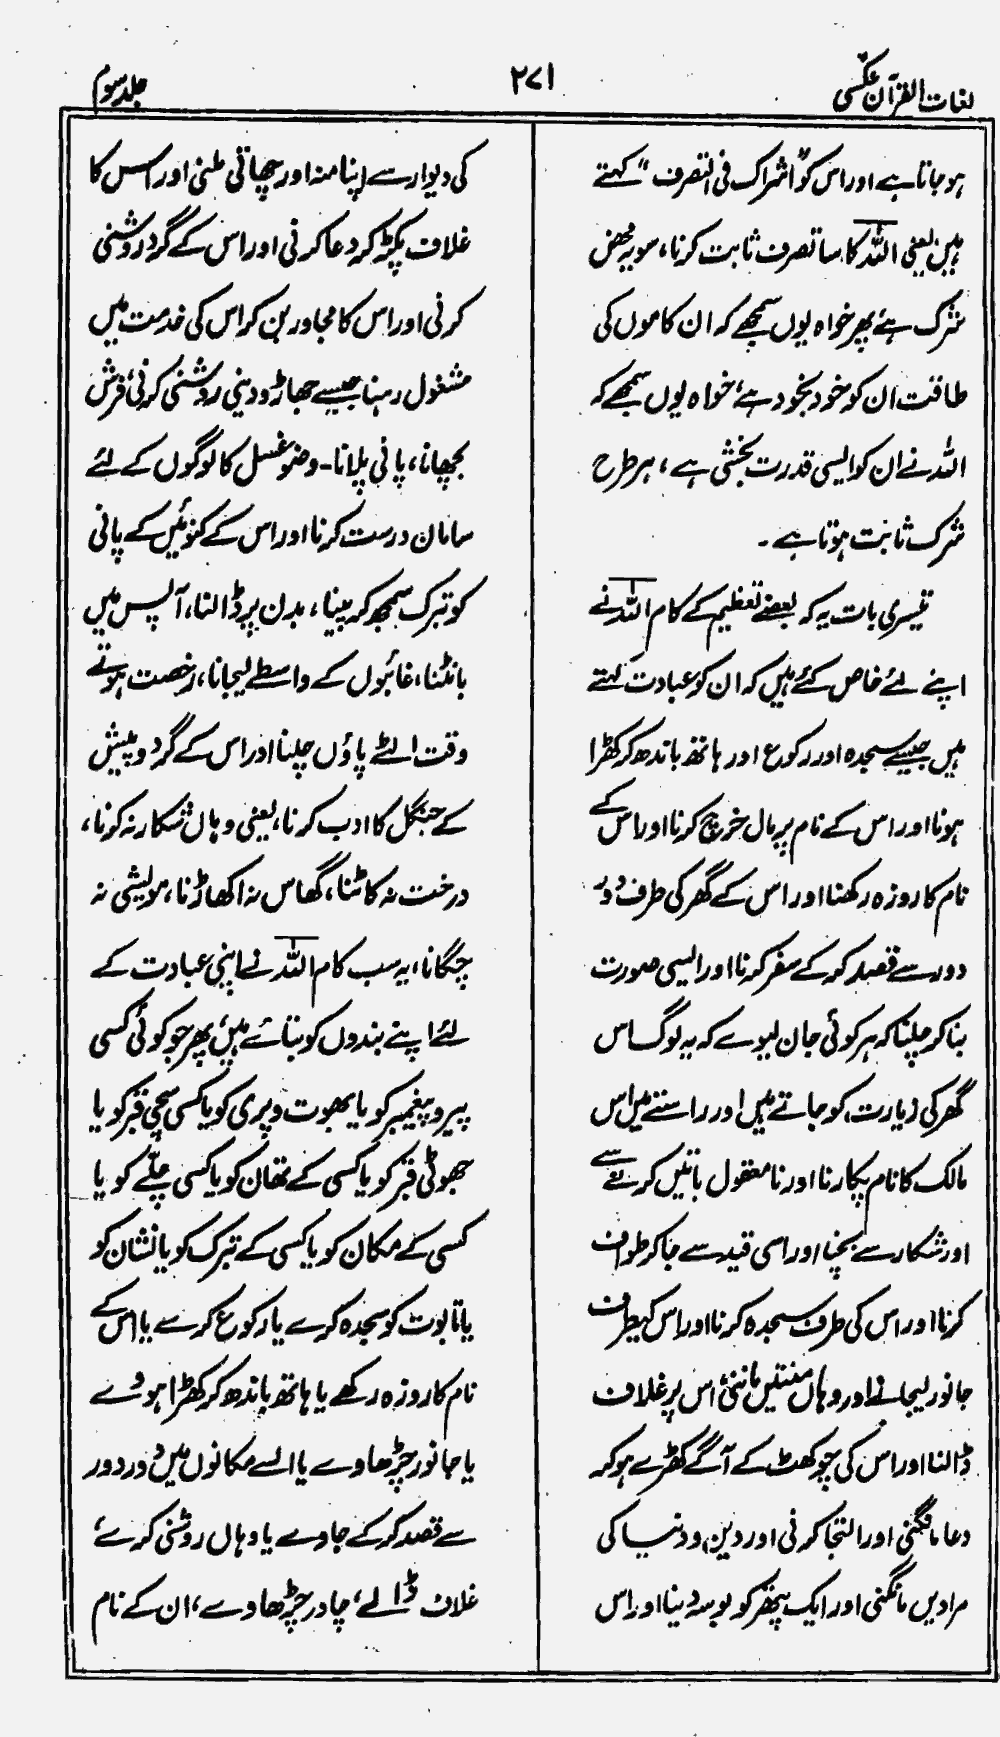 لغات القرآن عکسی
۲۷۱
جلد سوم
ہو جاتا ہے اور اس کو "اشراک فی التصرف" کہتے
ہیں یعنی اللہ کا سا تصرف ثابت کرنا، سو یہ محض
شرک ہے، پھر خواہ یوں سمجھے کہ ان کاموں کی
طاقت ان کو خود بخود ہے، خواہ یوں سمجھے کہ
اللہ نے ان کو ایسی قدرت بخشی ہے، ہر طرح
شرک ثابت ہوتا ہے۔
تیسری بات یہ کہ بعضے تعظیم کے کام اللہ نے
اپنے لئے خاص کئے ہیں کہ ان کو عبادت کہتے
ہیں جیسے سجدہ اور رکوع اور ہاتھ باندھ کر کھڑا
ہونا اور اس کے نام پر مال خرچ کرنا اور اس کے
نام کا روزہ رکھنا اور اس کے گھر کی طرف دور
دور سے قصد کر کے سفر کرنا اور ایسی صورت
بنا کر چلنا کہ ہر کوئی جان لیوے کہ یہ لوگ اس
گھر کی زیارت کو جاتے ہیں اور راستے میں اس
مالک کا نام پکارنا اور نامعقول باتیں کرنے سے
اور شکار سے بچنا اور اسی قید سے جا کر طواف
کرنا اور اس کی طرف سجدہ کرنا اور اس کیطرف
جانور لیجانے اور وہاں منتیں ماننی، اس پر غلاف
ڈالنا اور اس کی چوکھٹ کے آگے کھڑے ہو کر
دعا مانگنی اور التجا کرنی اور دین و دنیا کی
مرادیں مانگنی اور ایک پتھر کو بوسہ دینا اور اس
کی دیوار سے اپنا منہ اور چھاتی ملنی اور اس کا
غلاف پکڑ کر دعا کرنی اور اس کے گرد روشنی
کرنی اور اس کا مجاور بن کر اس کی خدمت میں
مشغول رہنا جیسے جھاڑو دینی روشنی کرنی، فرش
بچھانا، پانی پلانا۔ وضو غسل کا لوگوں کے لئے
سامان درست کرنا اور اس کے کنوئیں کے پانی
کو تبرک سمجھ کر پینا، بدن پر ڈالنا، آپس میں
بانٹنا، غائبوں کے واسطے لیجانا، رخصت ہوتے
وقت الٹے پاؤں چلنا اور اس کے گرد و پیش
کے جنگل کا ادب کرنا، یعنی وہاں شکار نہ کرنا،
درخت نہ کاٹنا، گھاس نہ اکھاڑنا، مویشی نہ
چگانا، یہ سب کام اللہ نے اپنی عبادت کے
لئے اپنے بندوں کو بتائے ہیں، پھر جو کوئی کسی
پیر و پیغمبر کو یا بھوت و پری کو یا کسی سچی قبر کو یا
جھوٹی قبر کو یا کسی کے تھان کو یا کسی چلّے کو یا
کسی کے مکان کو یا کسی کے تبرک کو یا نشان کو
یا تابوت کو سجدہ کرے یا رکوع کرے یا اس کے
نام کا روزہ رکھے یا ہاتھ باندھ کر کھڑا ہووے
یا جانور چڑھاوے یا ایسے مکانوں میں دور دور
سے قصد کر کے جاوے یا وہاں روشنی کرے،
غلاف ڈالے، چادر چڑھاوے، ان کے نام